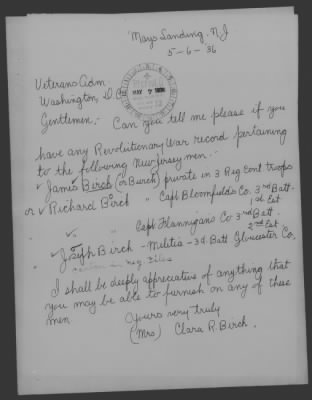 Mays Landing, N.J
5-6-36
Veterans Adm.
Washington, D.C.
MAY 7 1936
Gentlemen:- Can you tell me please if you
have any Revolutionary War record pertaining
to the following New Jersey men.
✓ James Birch (or Burch) private in 3 Reg Cont troops
or ✓ Richard Birch " Capt Bloomfields Co. 3rd Batt.
1st Est
✓ " Capt Flannigans Co 3rd Batt.
2nd Est
" ✓ Joseph Birch - Militia - 3d Batt Gloucester Co.
I shall be deeply appreciative of anything that
you may be able to furnish on any of these
men
Yours very truly
(Mrs) Clara R. Birch.